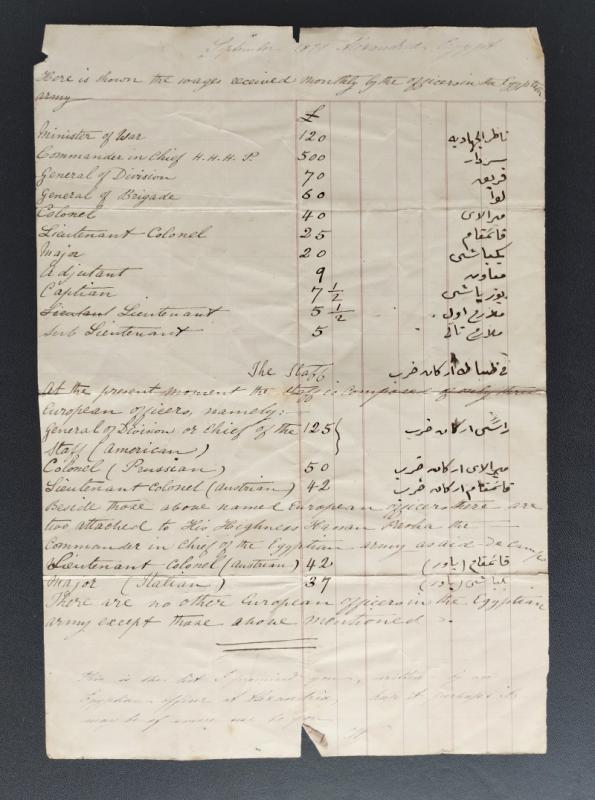 September 187 Alexandria Egypt
Here is shown the wages received monthly by the officers in the Egyptian
army
£
Minister of War 120 ناظر الجهاديه
Commander in Chief H.H.H.P. 500 سردار
General of Division 70 فريق
General of Brigade 60 لوا
Colonel 40 ميرالاى
Lieutenant Colonel 25 قائمقام
Major 20 بكباشى
Adjutant 9 معاون
Captian 7 1/2 يوزباشى
Lieutenant 5 1/2 ملازم اول
Sub Lieutenant 5 ملازم ثانى
The Staff اركان حرب
At the present moment the staff is composed of only three
European officers, namely:-
General of Division or Chief of the 125 اركان حرب
Staff (American)
Colonel (Prussian) 50 ميرالاى اركان حرب
Lieutenant Colonel (Austrian) 42 قائمقام اركان حرب
Beside those above named European officers there are
two attached to His Highness Pasha the
Commander in Chief of the Egyptian army as aid de camp
Lieutenant Colonel (Austrian) 42 قائمقام (ياور)
Major (Italian) 37 بكباشى (ياور)
There are no other European officers in the Egyptian
army except those above mentioned.
This is the list I promised you, written by an
Egyptian officer at Alexandria, perhaps it
may be of some use to you